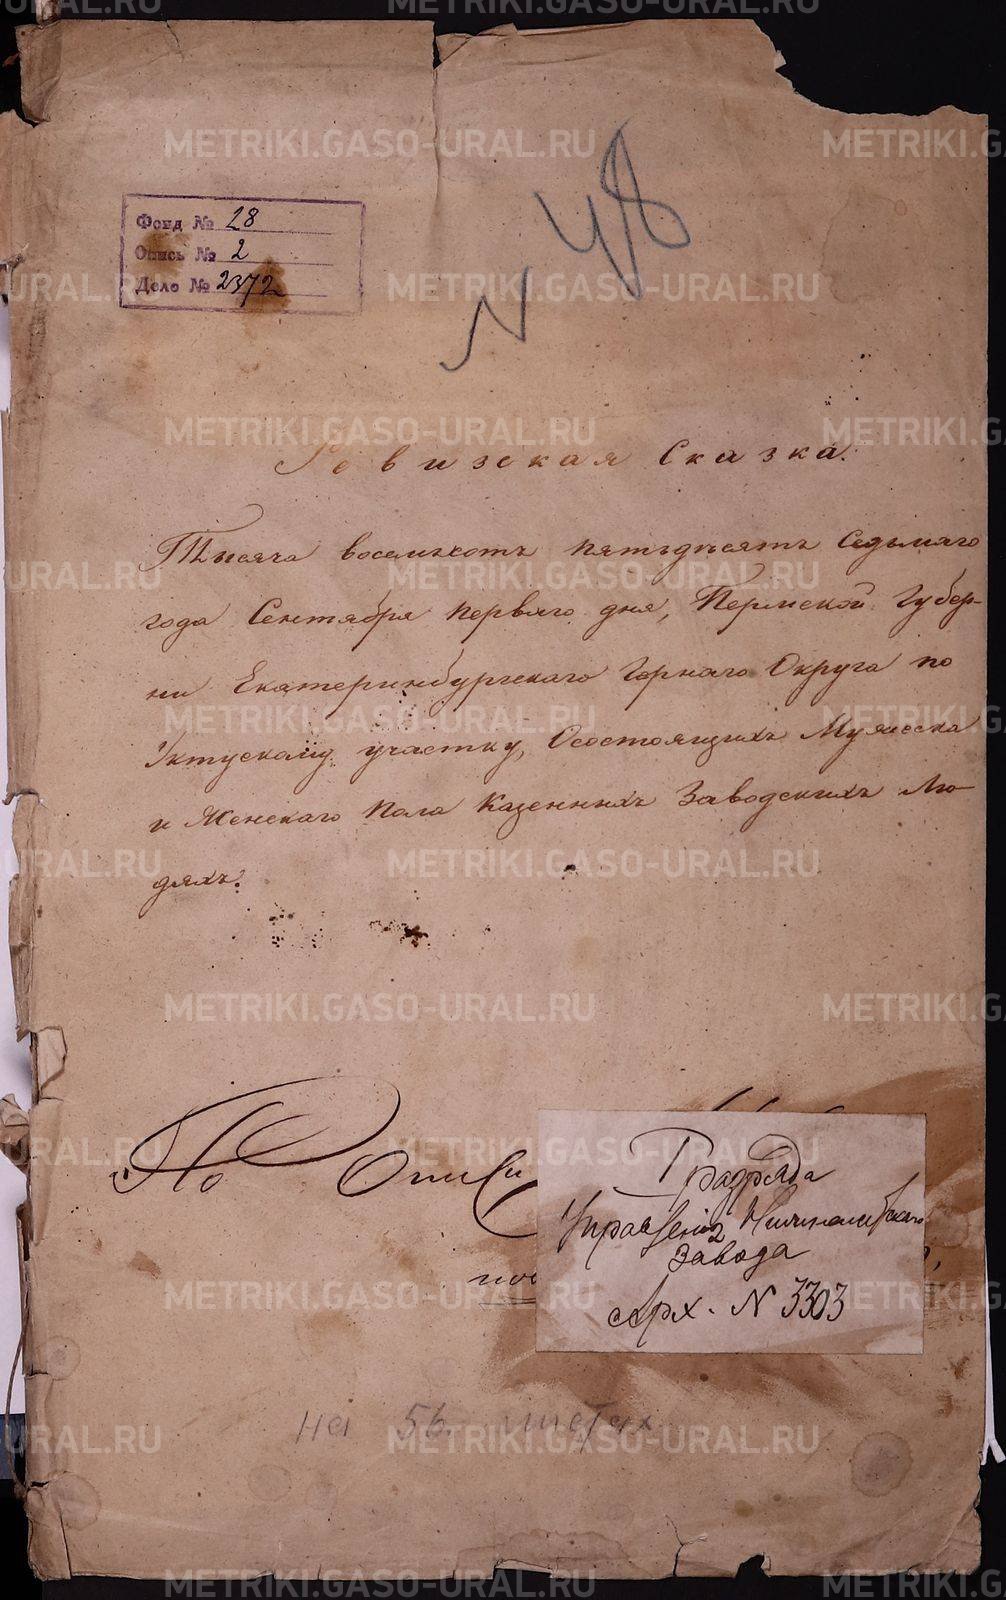 Фонд № 28
Опись № 2
Дело № 2372
N 48
Ревизская Сказка.
Тысяча восемьсотъ пятьдѣсятъ Седьмаго
года Сентября первяго дня, Пермской Губер-
ни Екатеринбургскаго Горнаго Округа по
Уктускому участку, О состоящихъ Мужеска
и Женскаго пола Казенныхъ Заводскихъ Лю-
дяхъ.
По Описи
1 разряда
Управленія
Завода
Арх. N 3303
на 56. листах
METRIKI.GASO-URAL.RU